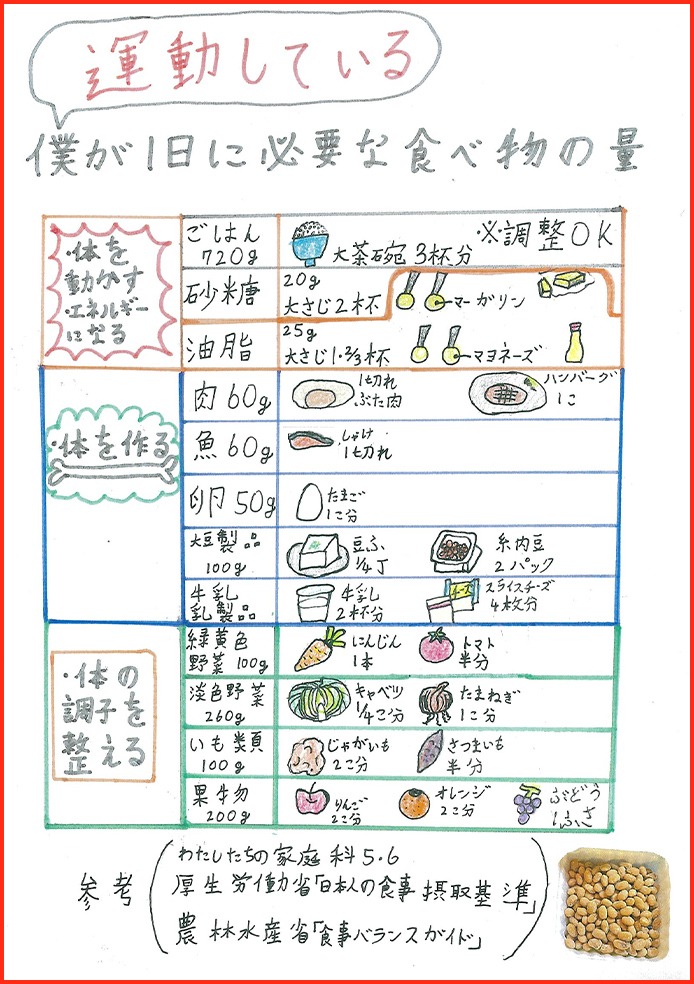 運動している
僕が1日に必要な食べ物の量
・体を
動かす
・エネルギー
になる
ごはん
720g
大茶碗 3杯分
※調整OK
砂糖
20g
大さじ2杯
マーガリン
油脂
25g
大さじ1・2/3杯
マヨネーズ
・体を作る
肉 60g
1切れ
ぶた肉
ハンバーグ
1こ
魚 60g
しゃけ
1切れ
卵 50g
たまご
1こ分
大豆製品
100g
豆ふ
1/4丁
糸内豆
2パック
牛乳
乳製品
牛乳
2杯分
チーズ
スライスチーズ
4枚分
・体の
調子を
整える
緑黄色
野菜 100g
にんじん
1本
トマト
半分
淡色野菜
260g
キャベツ
1/4こ分
たまねぎ
1こ分
いも類
100g
じゃがいも
2こ分
さつまいも
半分
果物
200g
りんご
2こ分
オレンジ
2こ分
ぶどう
1ふさ
参考
わたしたちの家庭科5・6
厚生労働省「日本人の食事摂取基準」
農林水産省「食事バランスガイド」